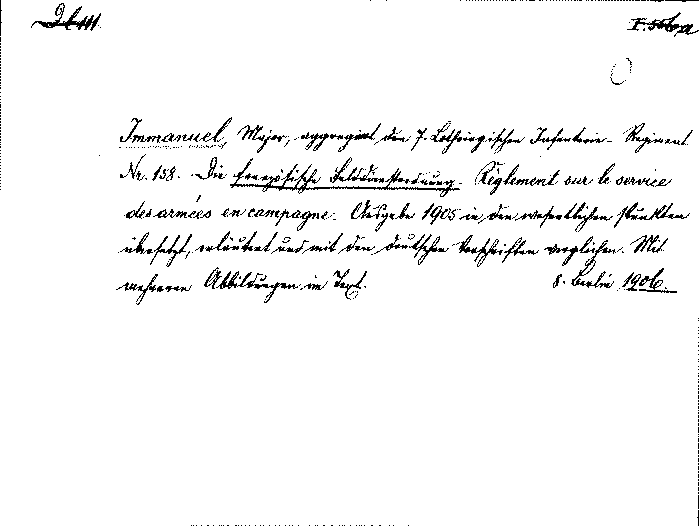 Immanuel, Major, aggregirt dem 7. Lothringischen Infanterie-Regiment
Nr. 158. Die französische Felddienstordnung. Règlement sur le service
des armées en campagne. Ausgabe 1905 in den wesentlichen Punkten
übersetzt, erläutert und mit den deutschen Vorschriften verglichen. Mit
mehreren Abbildungen im Text. 8. Berlin 1906.